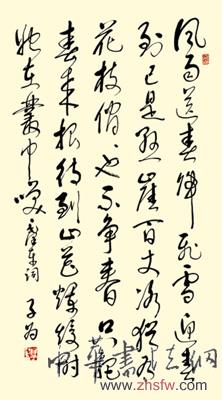 风雨送春归飞雪迎春
到已是悬崖百丈冰犹有
花枝俏俏也不争春只把
春来报待到山花烂熳时
她在丛中笑 毛泽东词
www.zhsfw.com